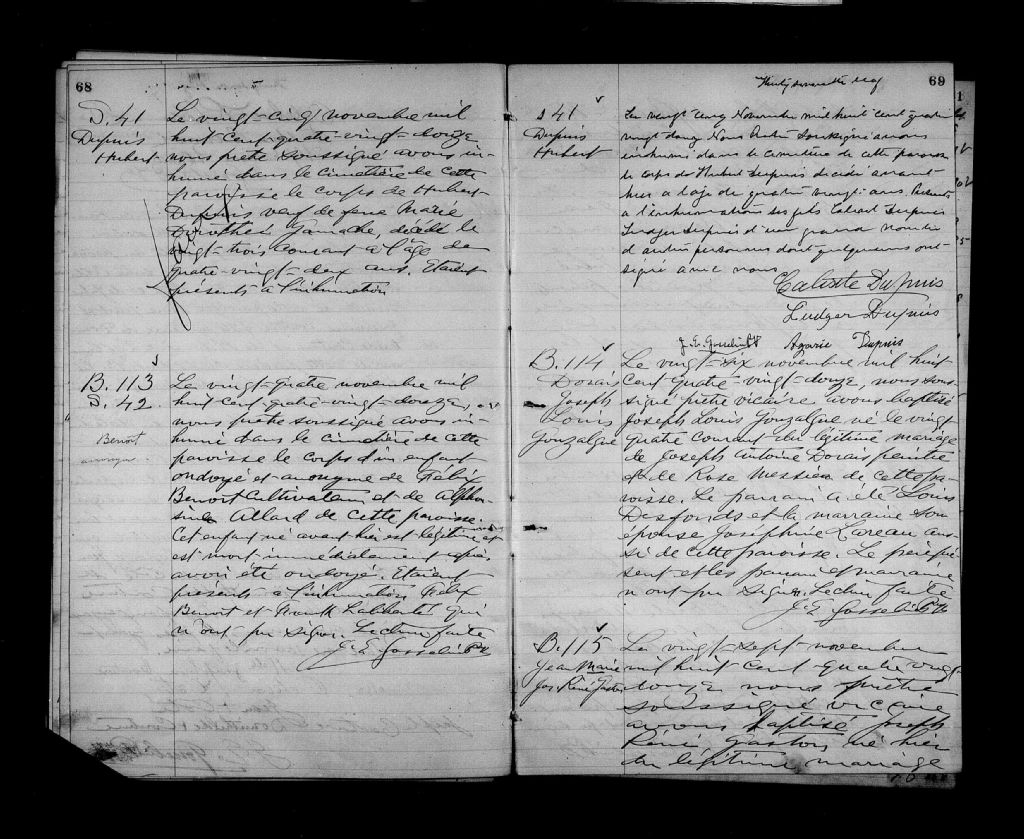 68
S. 41
Dupuis
Hubert
Le vingt-cinq novembre mil
huit cent quatre-vingt-douze
nous prêtre soussigné avons in-
humé dans le cimetière de cette
paroisse le corps de Hubert
Dupuis veuf de feue Marie
Dorothée decédé le
vingt-trois courant à l'âge de
quatre-vingt-deux ans. Etaient
présents à l'inhumation
B. 113
S. 42
Benoit
anonyme
Le vingt-quatre novembre mil
huit cent quatre-vingt-douze,
nous prêtre soussigné avons in-
humé dans le cimetière de cette
paroisse le corps d'un enfant
ondoyé et anonyme de Felix
Benoit Cultivateur et de Alphon-
sine Allard de cette paroisse.
Cet enfant né avant hier est légitime et
est mort immédiatement après
avoir été ondoyé. Etaient
présents à l'inhumation Felix
Benoit et Frank Laliberté qui
n'ont pu signer. Lecture faite
J. E. Gosselin Ptre
69
S 41
Dupuis
Hubert
Le vingt cinq Novembre mil huit cent quatre
vingt douze Nous Prêtre Soussigné avons
inhumé dans le cimetière de cette paroisse
le corps de Hubert Dupuis décédé avant
hier a l'age de quatre vingt ans. Présents
a l'inhumation ses fils Calixte Dupuis
Ludger Dupuis d'un grand nombre
d'autres personnes dont quelques uns ont
signé avec nous
Calixte Dupuis
Ludger Dupuis
J. E. Gosselin Agarie Dupuis
B. 114
Dorais
Joseph
Louis
Gonzalgue
Le vingt-six novembre mil huit
cent quatre-vingt-douze, nous sous-
signé prêtre vicaire avons baptisé
Joseph Louis Gonzalgue né le vingt
quatre courant du légitime mariage
de Joseph Antoine Dorais peintre
et de Rose Messier de cette pa-
roisse. Le parrain a été Louis
Desfonds et la marraine son
épouse Josephine Careau aus-
si de cette paroisse. Le père pré-
sent et les parrain et marraine
n'ont pu signer. Lecture faite
J. E. Gosselin Ptre
B. 115
Jean Marie
Jos. René Gaston
Le vingt-sept novembre
mil huit cent quatre vingt-
douze nous prêtre
soussigné vicaire
avons baptisé Joseph
René Gaston né hier
du légitime mariage